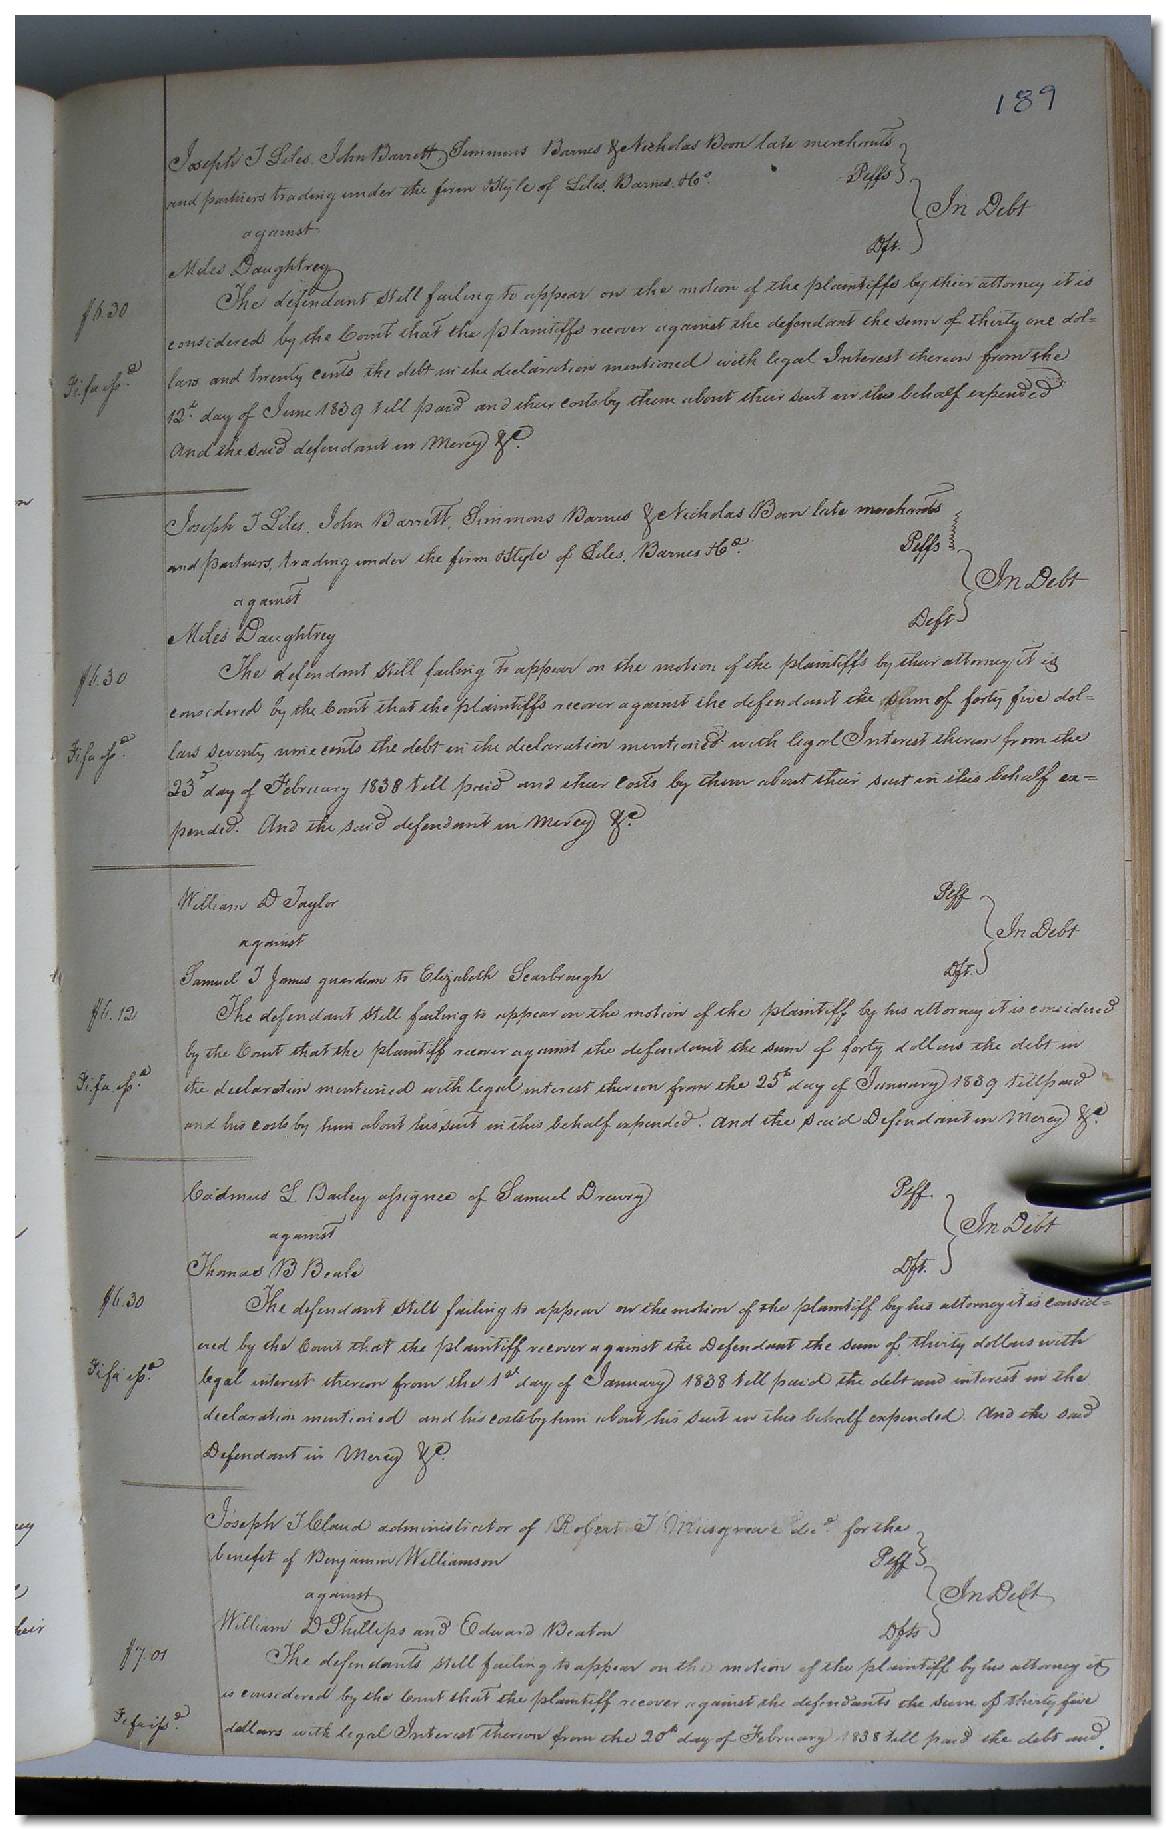 189
Joseph T Liles, John Barrett, Simmons Barnes & Nicholas Boon late merchants
and partners trading under the firm & Style of Liles, Barnes & Co. Plffs
In Debt
against
Dft.
Miles Daughtrey
The defendant still failing to appear on the motion of the plaintiffs by their attorney it is
$6.30
considered by the Court that the plaintiffs recover against the defendant the sum of thirty one dol=
lars and twenty cents the debt in the declaration mentioned with legal Interest thereon from the
Fi. fa issd.
12th day of June 1839 till paid and their costs by them about their suit in this behalf expended
And the said defendant in Mercy &c.
Joseph T Liles, John Barrett, Simmons Barnes & Nicholas Boon late merchants
and partners, trading under the firm & Style of Liles, Barnes & Co. Plffs
In Debt
against
Deft
Miles Daughtrey
The defendant still failing to appear on the motion of the plaintiffs by their attorney it is
$6.30
considered by the Court that the plaintiffs recover against the defendant the sum of forty five dol=
lars seventy nine cents the debt in the declaration mentioned with legal Interest thereon from the
Fi fa issd.
23d day of February 1838 till paid and their Costs by them about their suit in this behalf ex=
pended. And the said defendant in Mercy &c.
William D Taylor Plff
against
In Debt
Samuel T James guardian to Elizabeth Scarbrough Dft.
The defendant still failing to appear on the motion of the plaintiff by his attorney it is considered
$6.12
by the Court that the plaintiff recover against the defendant the sum of forty dollars the debt in
the declaration mentioned with legal interest thereon from the 25th day of January 1839 till paid
Fi. fa issd.
and his costs by him about his suit in this behalf expended. And the said Defendant in Mercy &c.
Cadmus L Bailey assignee of Samuel Drewry Plff.
against
In Debt
Thomas B Beale Dft.
The defendant still failing to appear on the motion of the plaintiff by his attorney it is consid=
$6.30
ered by the Court that the plaintiff recover against the Defendant the sum of thirty dollars with
legal interest thereon from the 1st day of January 1838 till paid the debt and interest in the
Fi fa issd.
declaration mentioned and his costs by him about his suit in this behalf expended. And the said
Defendant in Mercy &c.
Joseph T Claud administrator of Robert T Musgrave decd. for the
benefit of Benjamin Williamson Plff
against
In Debt
William D Phillips and Edward Beaton Dfts
The defendants still failing to appear on the motion of the plaintiff by his attorney it
$7.01
is considered by the Court that the plaintiff recover against the defendants the sum of thirty five
dollars with legal Interest thereon from the 20th day of February 1838 till paid the debt and
Fi fa issd.